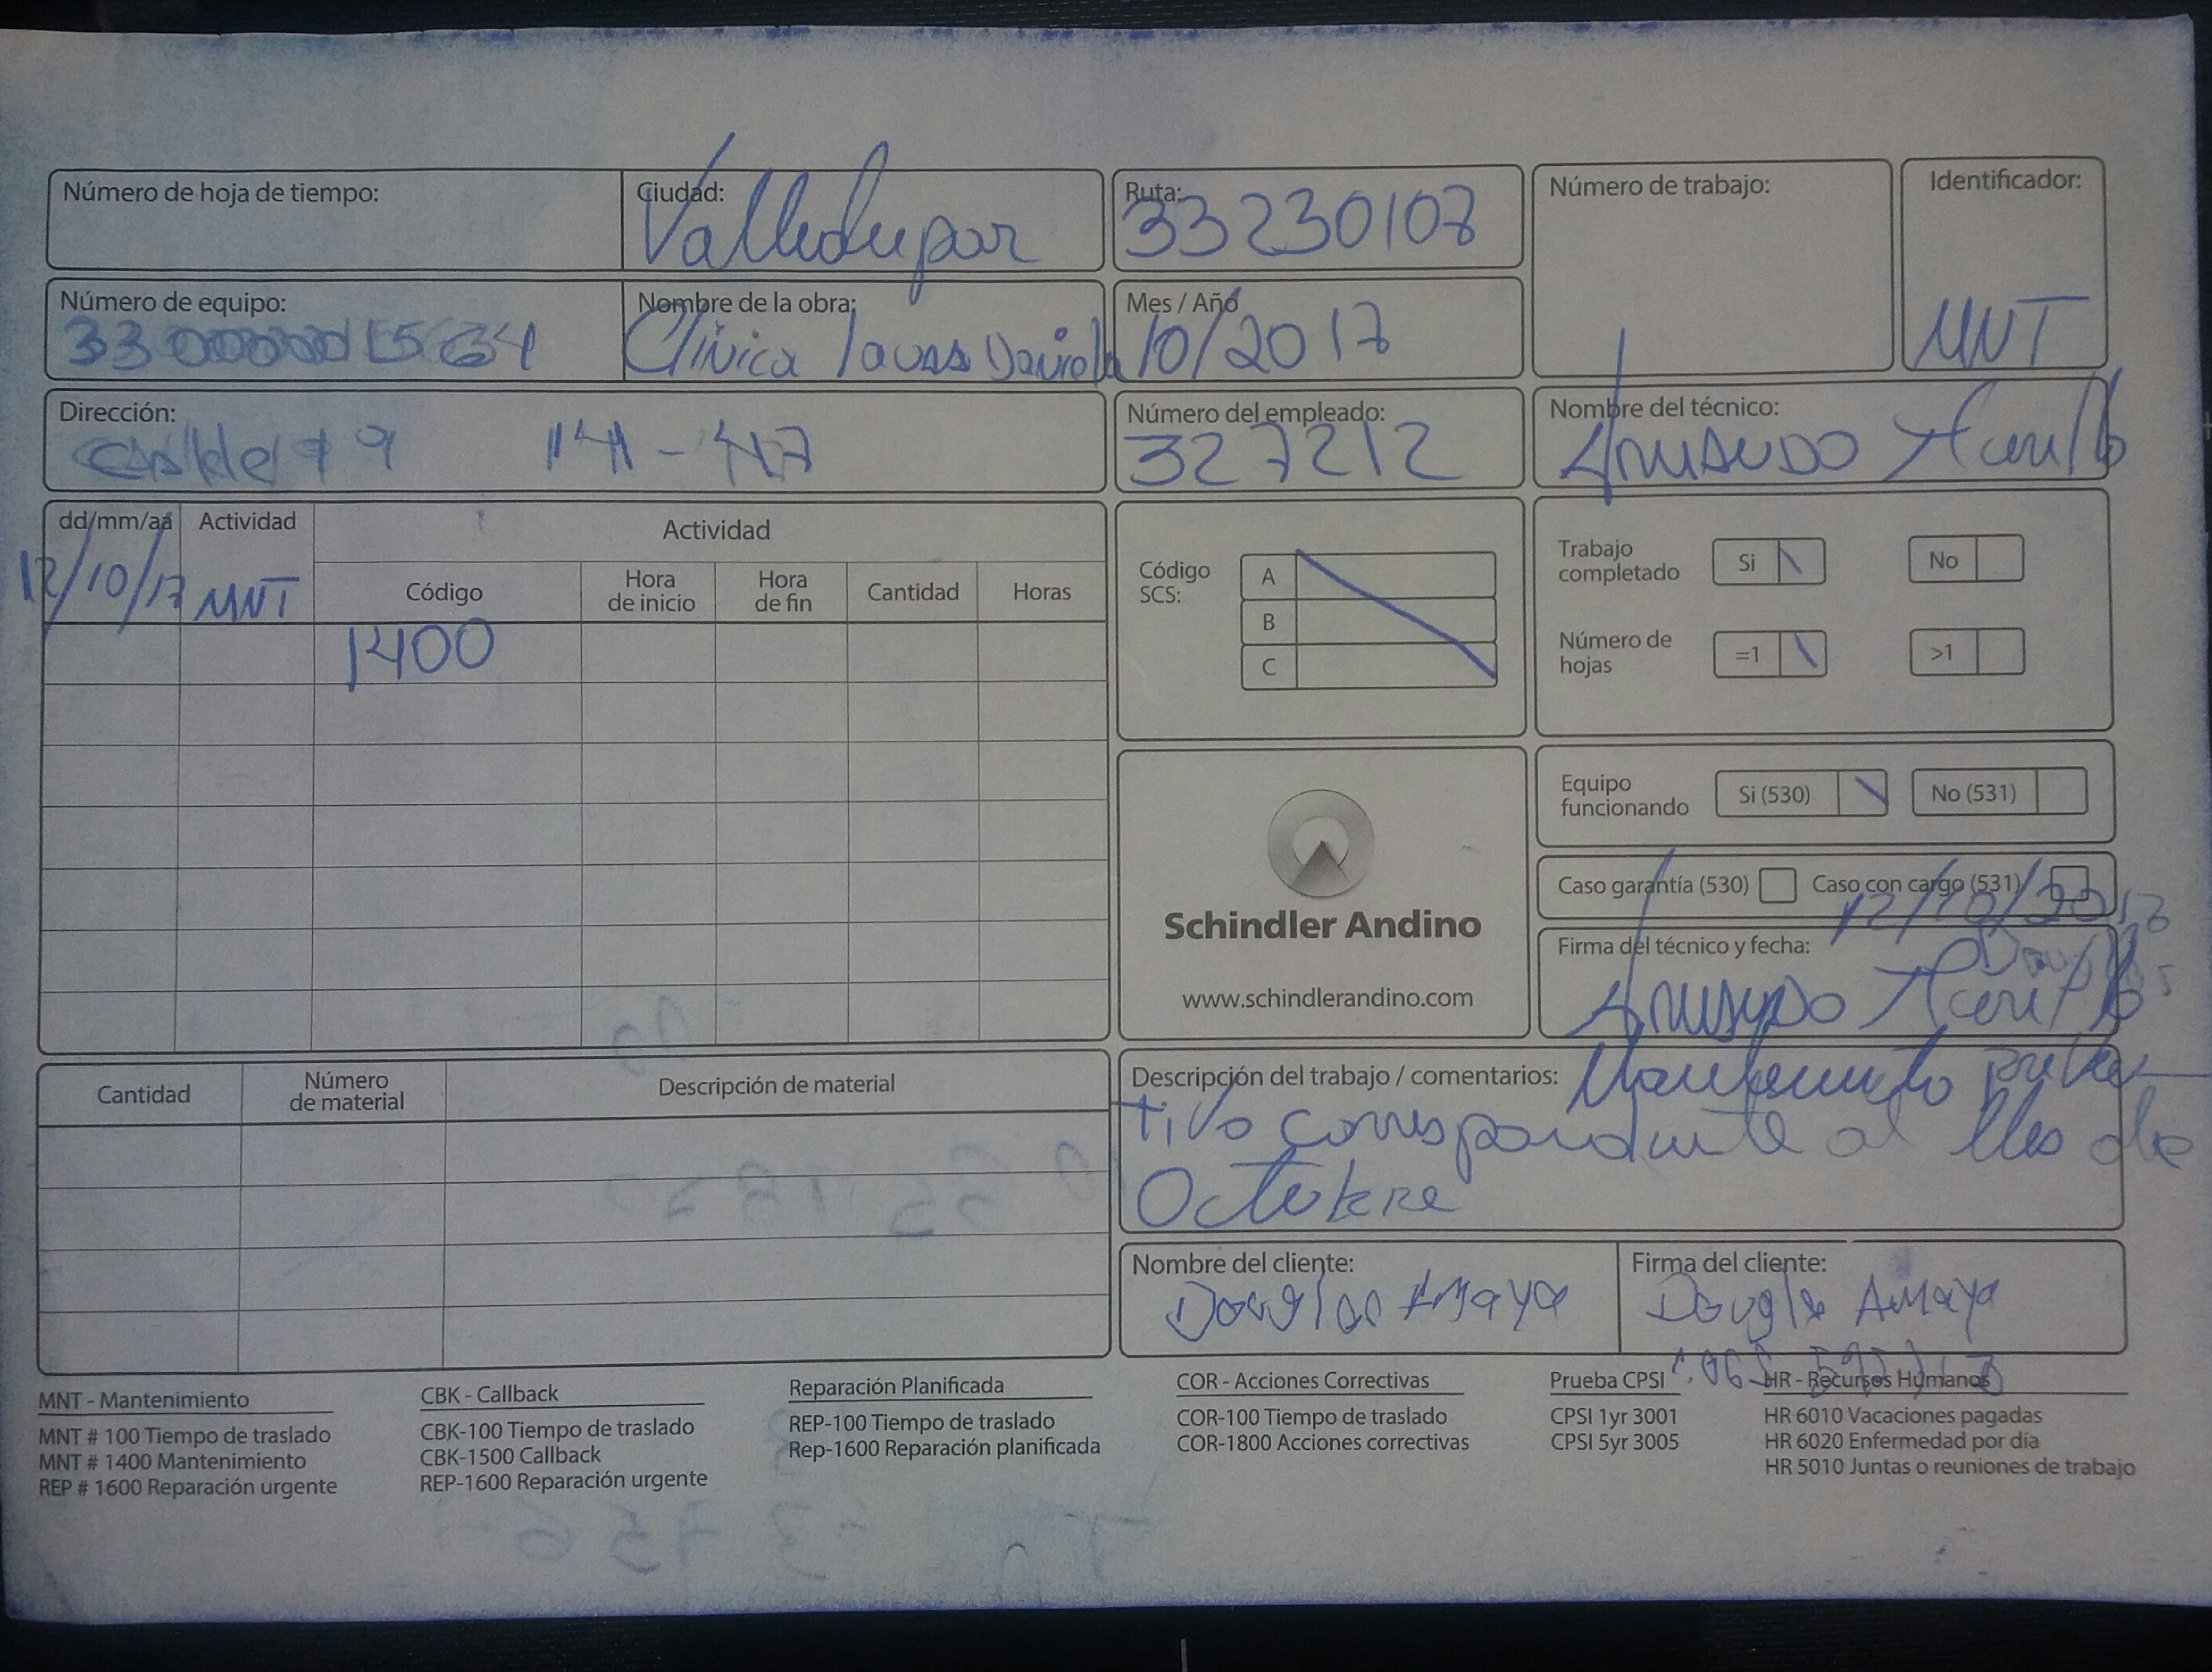 Número de hoja de tiempo:
Ciudad: Valledupar
Ruta: 33230107
Número de trabajo:
Identificador: MNT
Número de equipo:
Nombre de la obra: Clinica
Mes / Año 10/2017
Dirección:
Número del empleado: 327212
Nombre del técnico: Armando
dd/mm/aa Actividad Actividad
Código Hora de inicio Hora de fin Cantidad Horas
12/10/17 MNT
1400
Código SCS:
A
B
C
Trabajo completado Si No
Número de hojas =1 >1
Schindler Andino
www.schindlerandino.com
Equipo funcionando Si (530) No (531)
Caso garantía (530) Caso con cargo (531)
12/10/2017
Firma del técnico y fecha:
Armando
Cantidad Número de material Descripción de material
Descripción del trabajo / comentarios: Mantenimiento preven-
tivo correspondiente al Mes de
Octubre
Nombre del cliente:
Douglas Amaya
Firma del cliente:
Douglas Amaya
MNT - Mantenimiento
MNT # 100 Tiempo de traslado
MNT # 1400 Mantenimiento
REP # 1600 Reparación urgente
CBK - Callback
CBK-100 Tiempo de traslado
CBK-1500 Callback
REP-1600 Reparación urgente
Reparación Planificada
REP-100 Tiempo de traslado
Rep-1600 Reparación planificada
COR - Acciones Correctivas
COR-100 Tiempo de traslado
COR-1800 Acciones correctivas
Prueba CPSI
CPSI 1yr 3001
CPSI 5yr 3005
HR - Recursos Humanos
HR 6010 Vacaciones pagadas
HR 6020 Enfermedad por día
HR 5010 Juntas o reuniones de trabajo